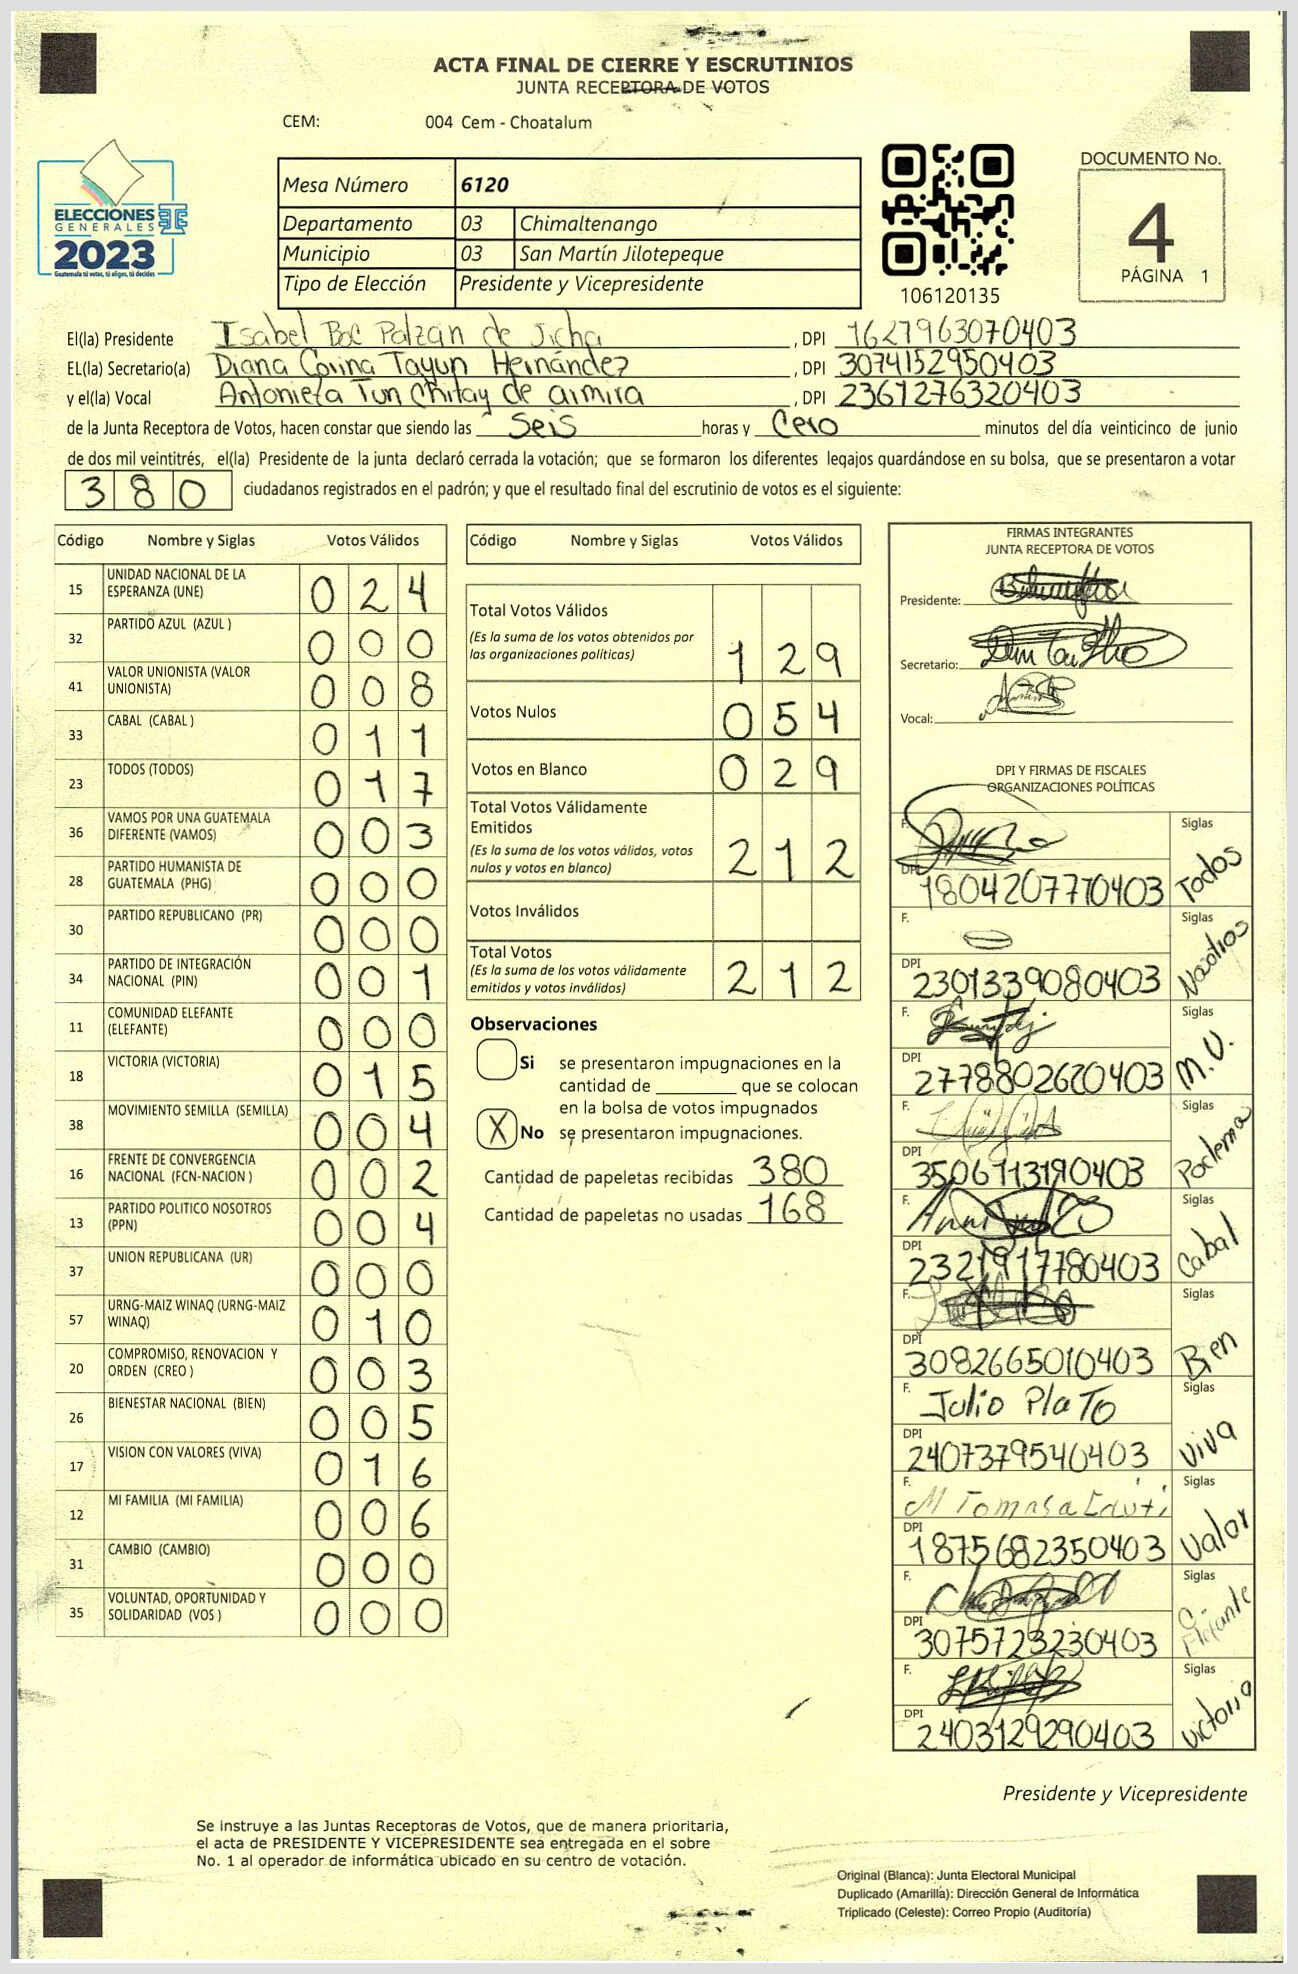 ACTA FINAL DE CIERRE Y ESCRUTINIOS
JUNTA RECEPTORA DE VOTOS
CEM: 004 Cem - Choatalum
ELECCIONES
GENERALES
2023
Guatemala tú votas, tú eliges, tú decides
Mesa Número 6120
Departamento 03 Chimaltenango
Municipio 03 San Martín Jilotepeque
Tipo de Elección Presidente y Vicepresidente
106120135
DOCUMENTO No.
4
PÁGINA 1
El(la) Presidente Isabel Boc Patzán de Jicha, DPI 1627963070403
EL(la) Secretario(a) Diana Corina Tayun Hernández, DPI 3074152950403
y el(la) Vocal Antonieta Tun Chitay de almira, DPI 2361276320403
de la Junta Receptora de Votos, hacen constar que siendo las Seis horas y Cero minutos del día veinticinco de junio
de dos mil veintitrés, el(la) Presidente de la junta declaró cerrada la votación; que se formaron los diferentes legajos guardándose en su bolsa, que se presentaron a votar
380 ciudadanos registrados en el padrón; y que el resultado final del escrutinio de votos es el siguiente:
Código Nombre y Siglas Votos Válidos
15 UNIDAD NACIONAL DE LA
ESPERANZA (UNE) 024
32 PARTIDO AZUL (AZUL ) 000
41 VALOR UNIONISTA (VALOR
UNIONISTA) 008
33 CABAL (CABAL ) 011
23 TODOS (TODOS) 017
36 VAMOS POR UNA GUATEMALA
DIFERENTE (VAMOS) 003
28 PARTIDO HUMANISTA DE
GUATEMALA (PHG) 000
30 PARTIDO REPUBLICANO (PR) 000
34 PARTIDO DE INTEGRACIÓN
NACIONAL (PIN) 001
11 COMUNIDAD ELEFANTE
(ELEFANTE) 000
18 VICTORIA (VICTORIA) 015
38 MOVIMIENTO SEMILLA (SEMILLA) 004
16 FRENTE DE CONVERGENCIA
NACIONAL (FCN-NACION ) 002
13 PARTIDO POLITICO NOSOTROS
(PPN) 004
37 UNION REPUBLICANA (UR) 000
57 URNG-MAIZ WINAQ (URNG-MAIZ
WINAQ) 010
20 COMPROMISO, RENOVACION Y
ORDEN (CREO ) 003
26 BIENESTAR NACIONAL (BIEN) 005
17 VISION CON VALORES (VIVA) 016
12 MI FAMILIA (MI FAMILIA) 006
31 CAMBIO (CAMBIO) 000
35 VOLUNTAD, OPORTUNIDAD Y
SOLIDARIDAD (VOS ) 000
Código Nombre y Siglas Votos Válidos
Total Votos Válidos
(Es la suma de los votos obtenidos por
las organizaciones políticas) 129
Votos Nulos 054
Votos en Blanco 029
Total Votos Válidamente
Emitidos
(Es la suma de los votos válidos, votos
nulos y votos en blanco) 212
Votos Inválidos
Total Votos
(Es la suma de los votos válidamente
emitidos y votos inválidos) 212
Observaciones
Si se presentaron impugnaciones en la
cantidad de ________ que se colocan
en la bolsa de votos impugnados
X No se presentaron impugnaciones.
Cantidad de papeletas recibidas 380
Cantidad de papeletas no usadas 168
FIRMAS INTEGRANTES
JUNTA RECEPTORA DE VOTOS
Presidente:
Secretario:
Vocal:
DPI Y FIRMAS DE FISCALES
ORGANIZACIONES POLÍTICAS
F. Siglas
DPI 1804207770403 Todos
F. Siglas
DPI 2301339080403 Nosotros
F. Siglas
DPI 2778802620403 M.V.
F. Siglas
DPI 3506113190403 Podema
F. Siglas
DPI 2321917780403 Cabal
F. Siglas
DPI 3082665010403 Bien
F. Julio Plato Siglas
DPI 2407379540403 Viva
F. M Tomasa Siglas
DPI 1875682350403 Valor
F. Siglas
DPI 3075723230403 C. Elefante
F. Siglas
DPI 2403129290403 Victoria
Presidente y Vicepresidente
Se instruye a las Juntas Receptoras de Votos, que de manera prioritaria,
el acta de PRESIDENTE Y VICEPRESIDENTE sea entregada en el sobre
No. 1 al operador de informática ubicado en su centro de votación.
Original (Blanca): Junta Electoral Municipal
Duplicado (Amarilla): Dirección General de Informática
Triplicado (Celeste): Correo Propio (Auditoría)